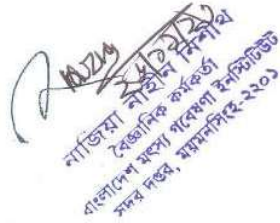 নাজিয়া নাইন নিশাথ
বৈজ্ঞানিক কর্মকর্তা
বাংলাদেশ মৎস্য গবেষণা ইনস্টিটিউট
সদর দপ্তর, ময়মনসিংহ-২২০১